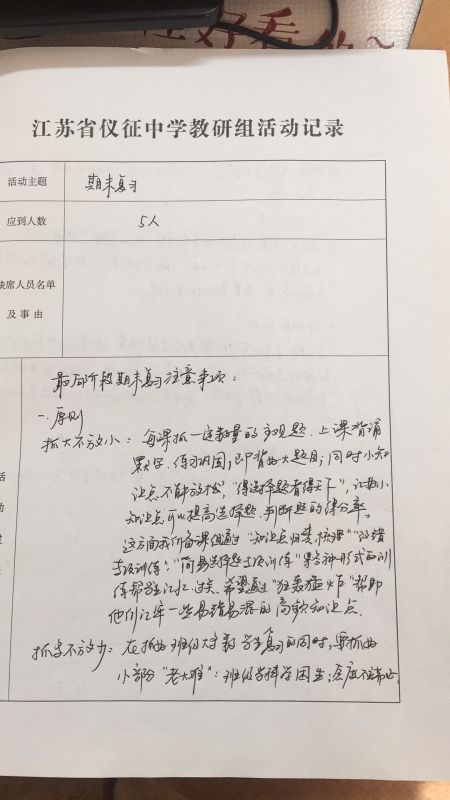 好看
江苏省仪征中学教研组活动记录
活动主题 期末复习
应到人数 5人
缺席人员名单
及事由
最后阶段期末复习注意事项：
一.原则
抓大不放小：每课抓一定数量的主观题.上课背诵
默写.练习巩固；即背好大题目；同时小知
识点不能放松，“得选择题者得天下”，记好小
知识点可以提高选择题.判断题的得分率。
这方面我们备课组通过“知识点归类梳理”
专项训练”“简易选择题专项训练”等各种形式的训
练帮学生记忆.过关.希望通过“狂轰猛炸”帮助
他们记牢一些易错易混的高频知识点.
抓多不放少：在抓好班级大多数学生复习的同时，要抓好
小部分“老大难”：班级学科学困生；态度不端正